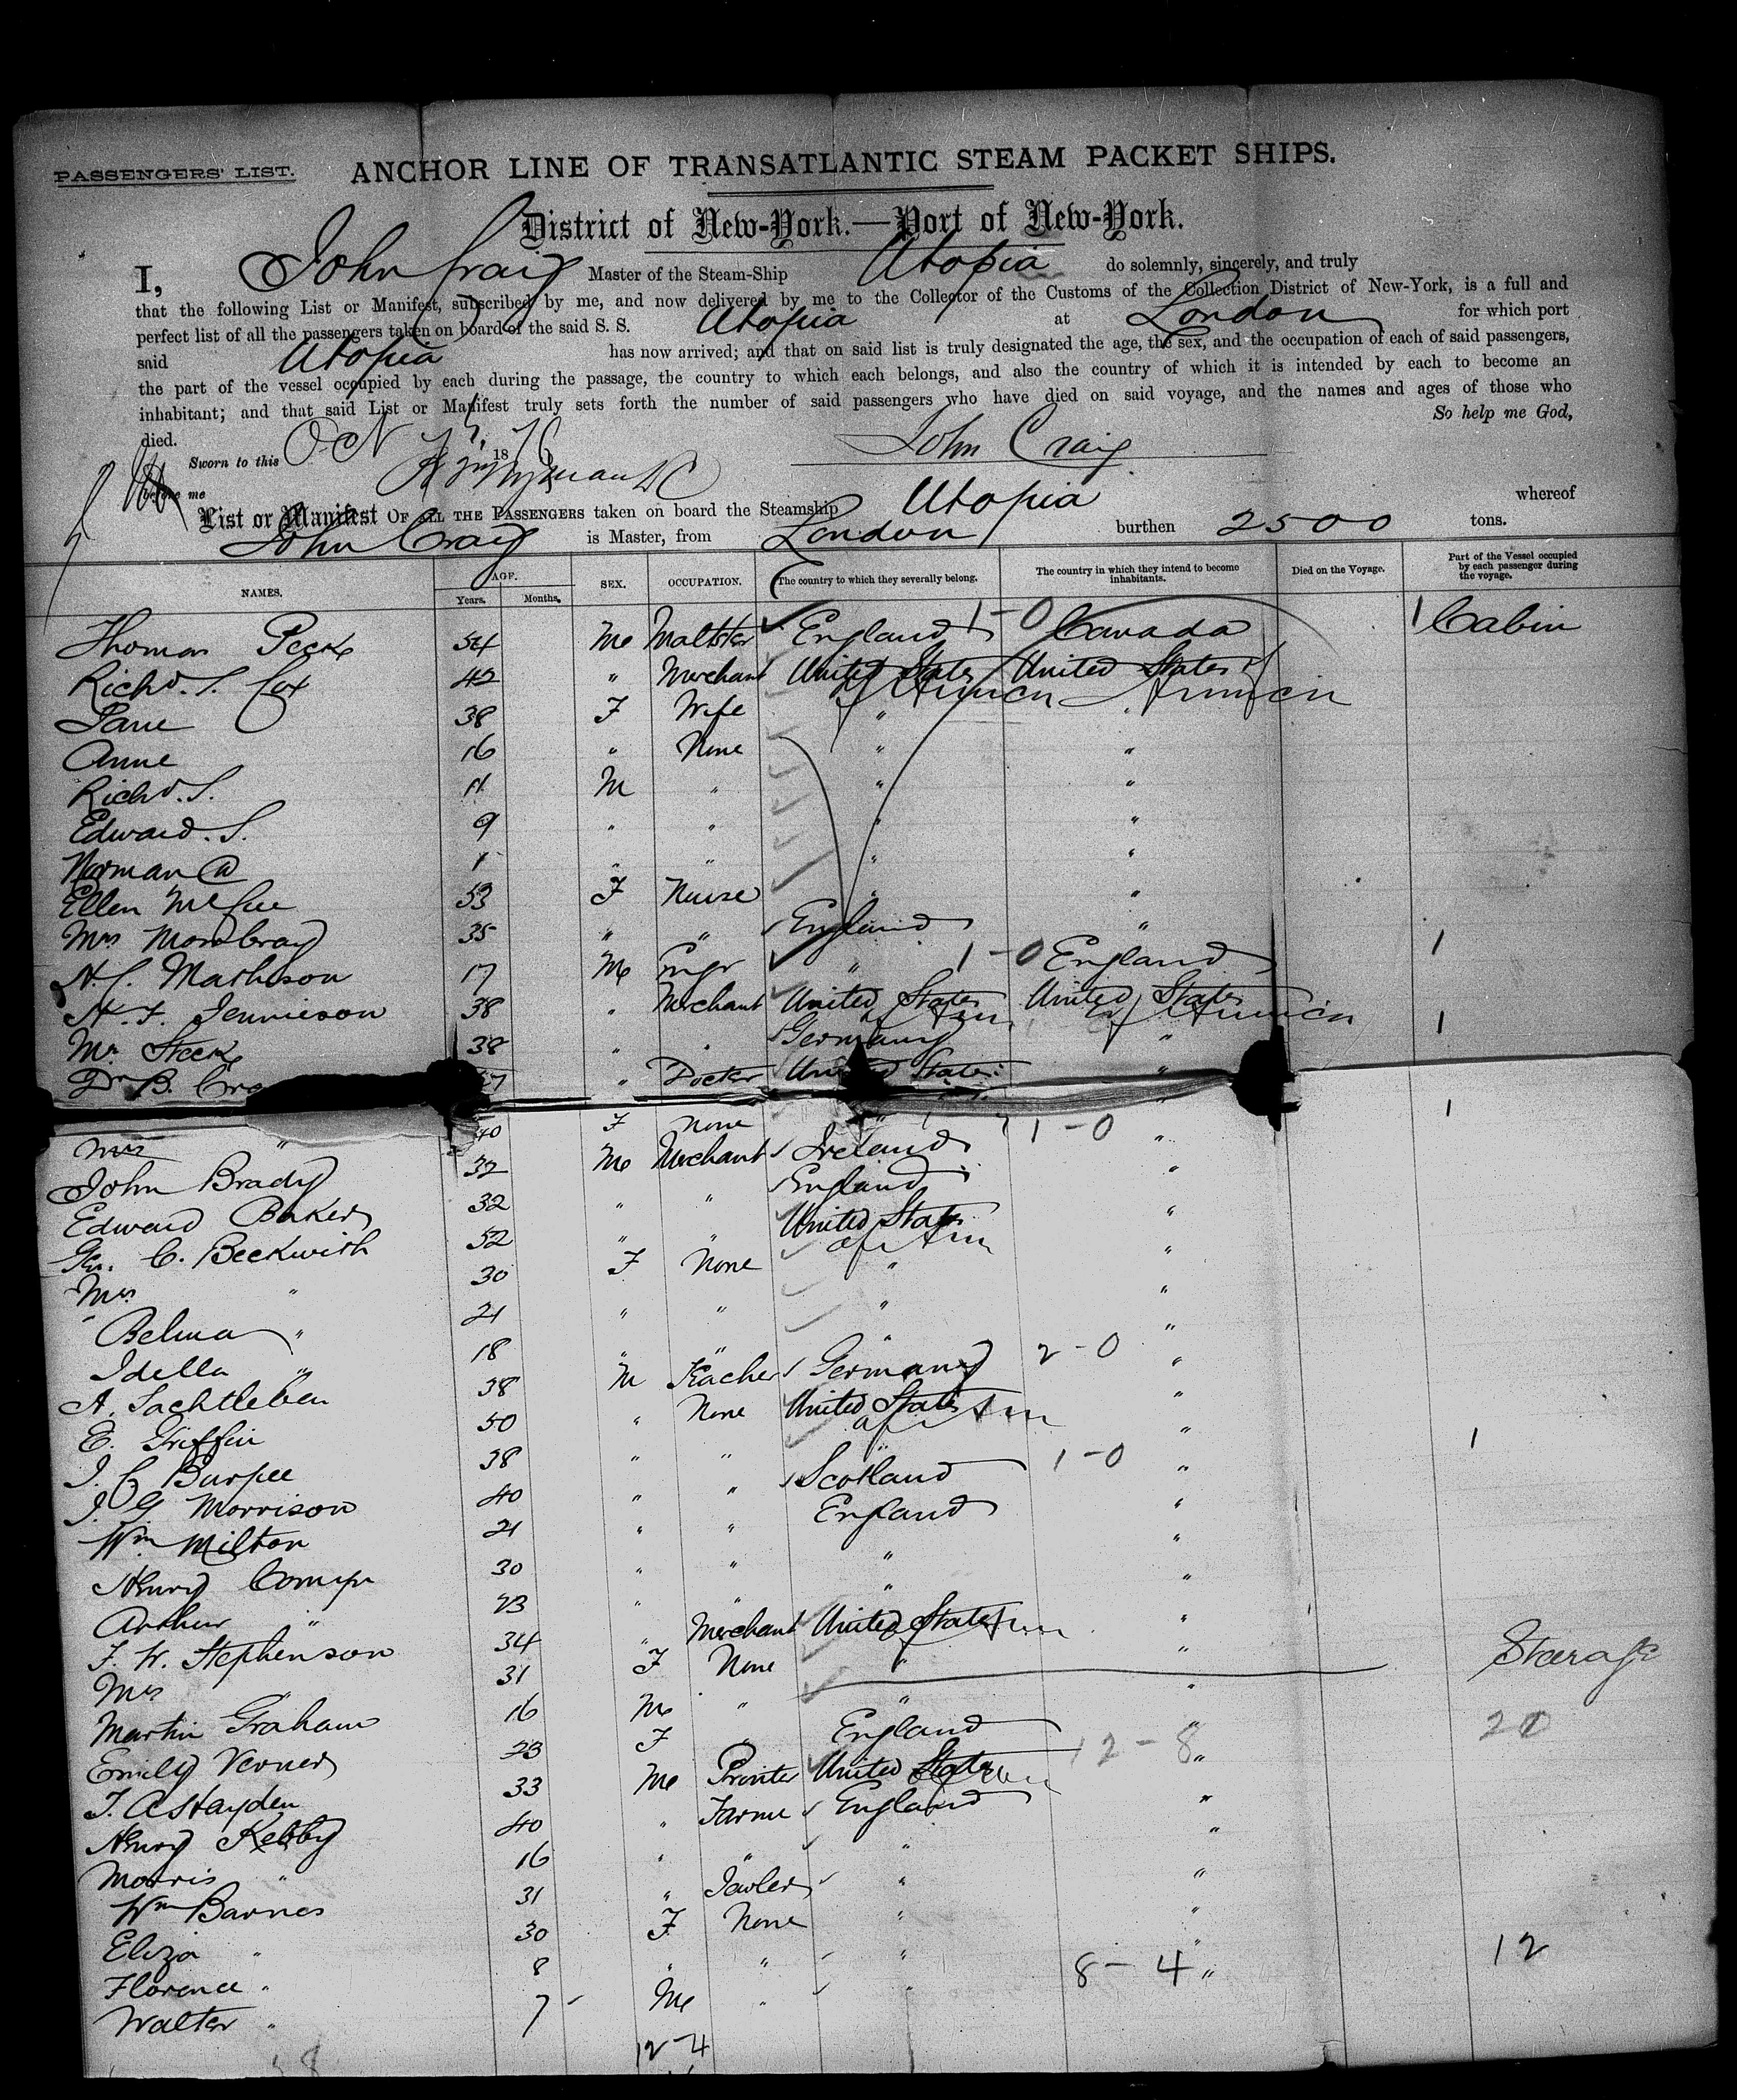 PASSENGERS' LIST. ANCHOR LINE OF TRANSATLANTIC STEAM PACKET SHIPS.
District of New-York.—Port of New-York.
I, John Craig Master of the Steam-Ship Utopia do solemnly, sincerely, and truly
that the following List or Manifest, subscribed by me, and now delivered by me to the Collector of the Customs of the Collection District of New-York, is a full and
perfect list of all the passengers taken on board of the said S. S. Utopia at London for which port
said Utopia has now arrived; and that on said list is truly designated the age, the sex, and the occupation of each of said passengers,
the part of the vessel occupied by each during the passage, the country to which each belongs, and also the country of which it is intended by each to become an
inhabitant; and that said List or Manifest truly sets forth the number of said passengers who have died on said voyage, and the names and ages of those who
died. So help me God,
Sworn to this 1876 John Craig
before me
List or Manifest OF ALL THE PASSENGERS taken on board the Steamship Utopia whereof
John Craig is Master, from London burthen 2500 tons.
NAMES. AGE. Years. Months. SEX. OCCUPATION. The country to which they severally belong. The country in which they intend to become inhabitants. Died on the Voyage. Part of the Vessel occupied by each passenger during the voyage.
Thomas 54 M Maltster England 1-0 Canada 1 Cabin
Richd. S. Cox 42 " Merchant United States of America United States of America
Jane 38 F Wife " "
Anne 16 " None " "
Richd. S. 11 M " " "
Edward. S. 9 " " " "
Norman A 1 " " " "
Ellen McCue 53 F Nurse " "
Mrs 35 " " England "
H. C. Mathison 17 M Engr " 1-0 England 1
H. F. 38 " Merchant United States of Am United States of America
Mr 38 " " Germany " 1
Dr B. " Doctor United States "
Mrs " 40 F None " " 1
John Brady 32 M Merchant Ireland 1-0 "
Edward Baker 32 " " England "
C. Beckwith 52 " " United States of Am "
Mrs " 30 F None " "
Belma " 21 " " " "
Idella " 18 " " " "
A. Sachtleben 38 M Teacher Germany 2-0 "
E. Griffin 50 " None United States of Am "
I. C. Burpee 38 " " " " 1
J. G. Morrison 40 " " Scotland 1-0 "
Wm Milton 21 " " England "
Henry 30 " " " "
Arthur " 23 " " " "
F. W. Stephenson 34 " Merchant United States Am "
Mrs " 31 F None " "
Martin Graham 16 M " " " Steerage
Emily Verner 23 F " England "
T. A Hayden 33 M Printer United States 12-8 "
Henry Kebby 40 " Farmer England "
Morris " 16 " " " "
Wm Barnes 31 " " "
Eliza " 30 F None " "
Florence " 8 " " " 8-4 " 12
Walter " 7 M " "
12-4